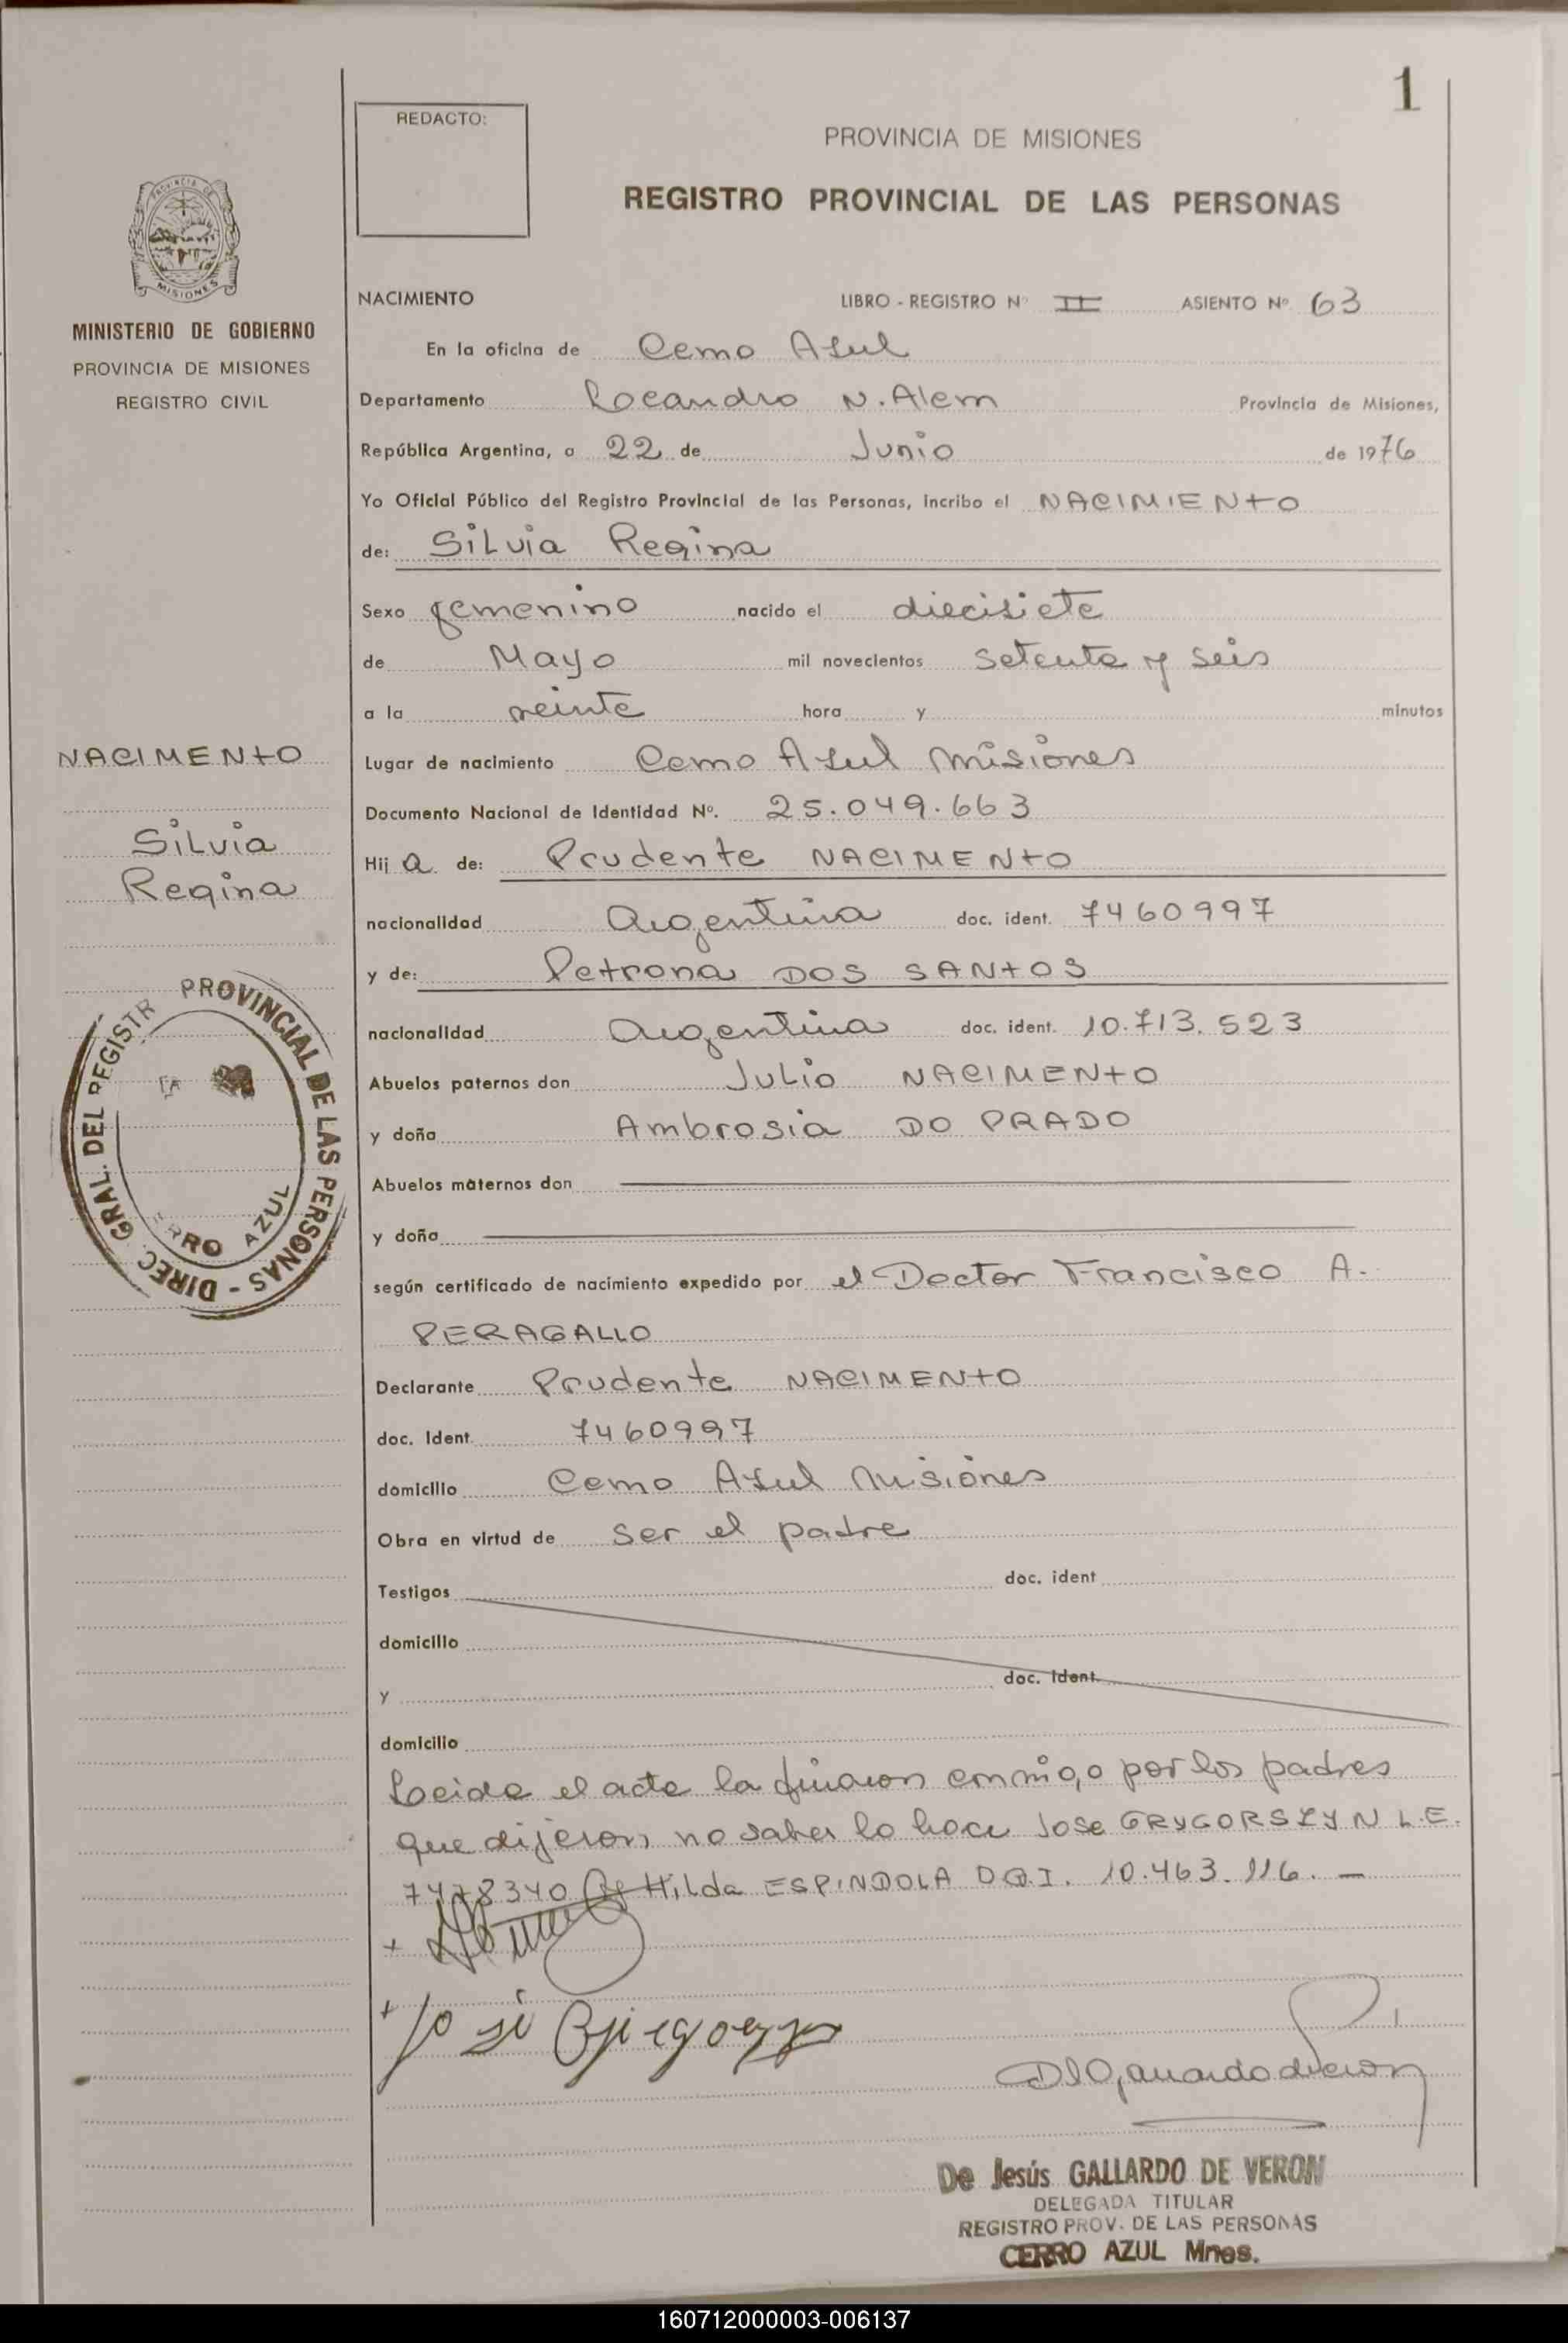 1
REDACTO:
PROVINCIA DE MISIONES
REGISTRO PROVINCIAL DE LAS PERSONAS
PROVINCIA DE
MISIONES
MINISTERIO DE GOBIERNO
PROVINCIA DE MISIONES
REGISTRO CIVIL
NACIMIENTO LIBRO - REGISTRO Nº II ASIENTO Nº 63
En la oficina de Cerro Azul
Departamento Leandro N. Alem Provincia de Misiones,
República Argentina, a 22 de Junio de 1976
Yo Oficial Público del Registro Provincial de las Personas, incribo el NACIMIENTO
de: Silvia Regina
Sexo femenino nacido el diecisiete
de Mayo mil novecientos setenta y seis
a la veinte hora y minutos
NACIMENTO
Silvia
Regina
Lugar de nacimiento Cerro Azul Misiones
Documento Nacional de Identidad Nº. 25.049.663
Hij a de: Prudente NACIMENTO
nacionalidad Argentina doc. ident. 7460997
y de: Petrona DOS SANTOS
nacionalidad Argentina doc. ident. 10.713.523
Abuelos paternos don Julio NACIMENTO
y doña Ambrosia DO PRADO
Abuelos maternos don
y doña
DIREC. GRAL. DEL REGISTR PROVINCIAL DE LAS PERSONAS -
ERRO AZUL
según certificado de nacimiento expedido por el Doctor Francisco A.
PERAGALLO
Declarante Prudente NACIMENTO
doc. Ident. 7460997
domicilio Cerro Azul Misiones
Obra en virtud de ser el padre
Testigos doc. ident
domicilio
y doc. ident.
domicilio
Leida el acta la firman conmigo por los padres
que dijeron no saber lo hace Jose GRYGORSZYN L.E.
7478340 Hilda ESPINDOLA D.Q.I. 10.463.116. —
De Jesús GALLARDO DE VERON
DELEGADA TITULAR
REGISTRO PROV. DE LAS PERSONAS
CERRO AZUL Mnes.
160712000003-006137